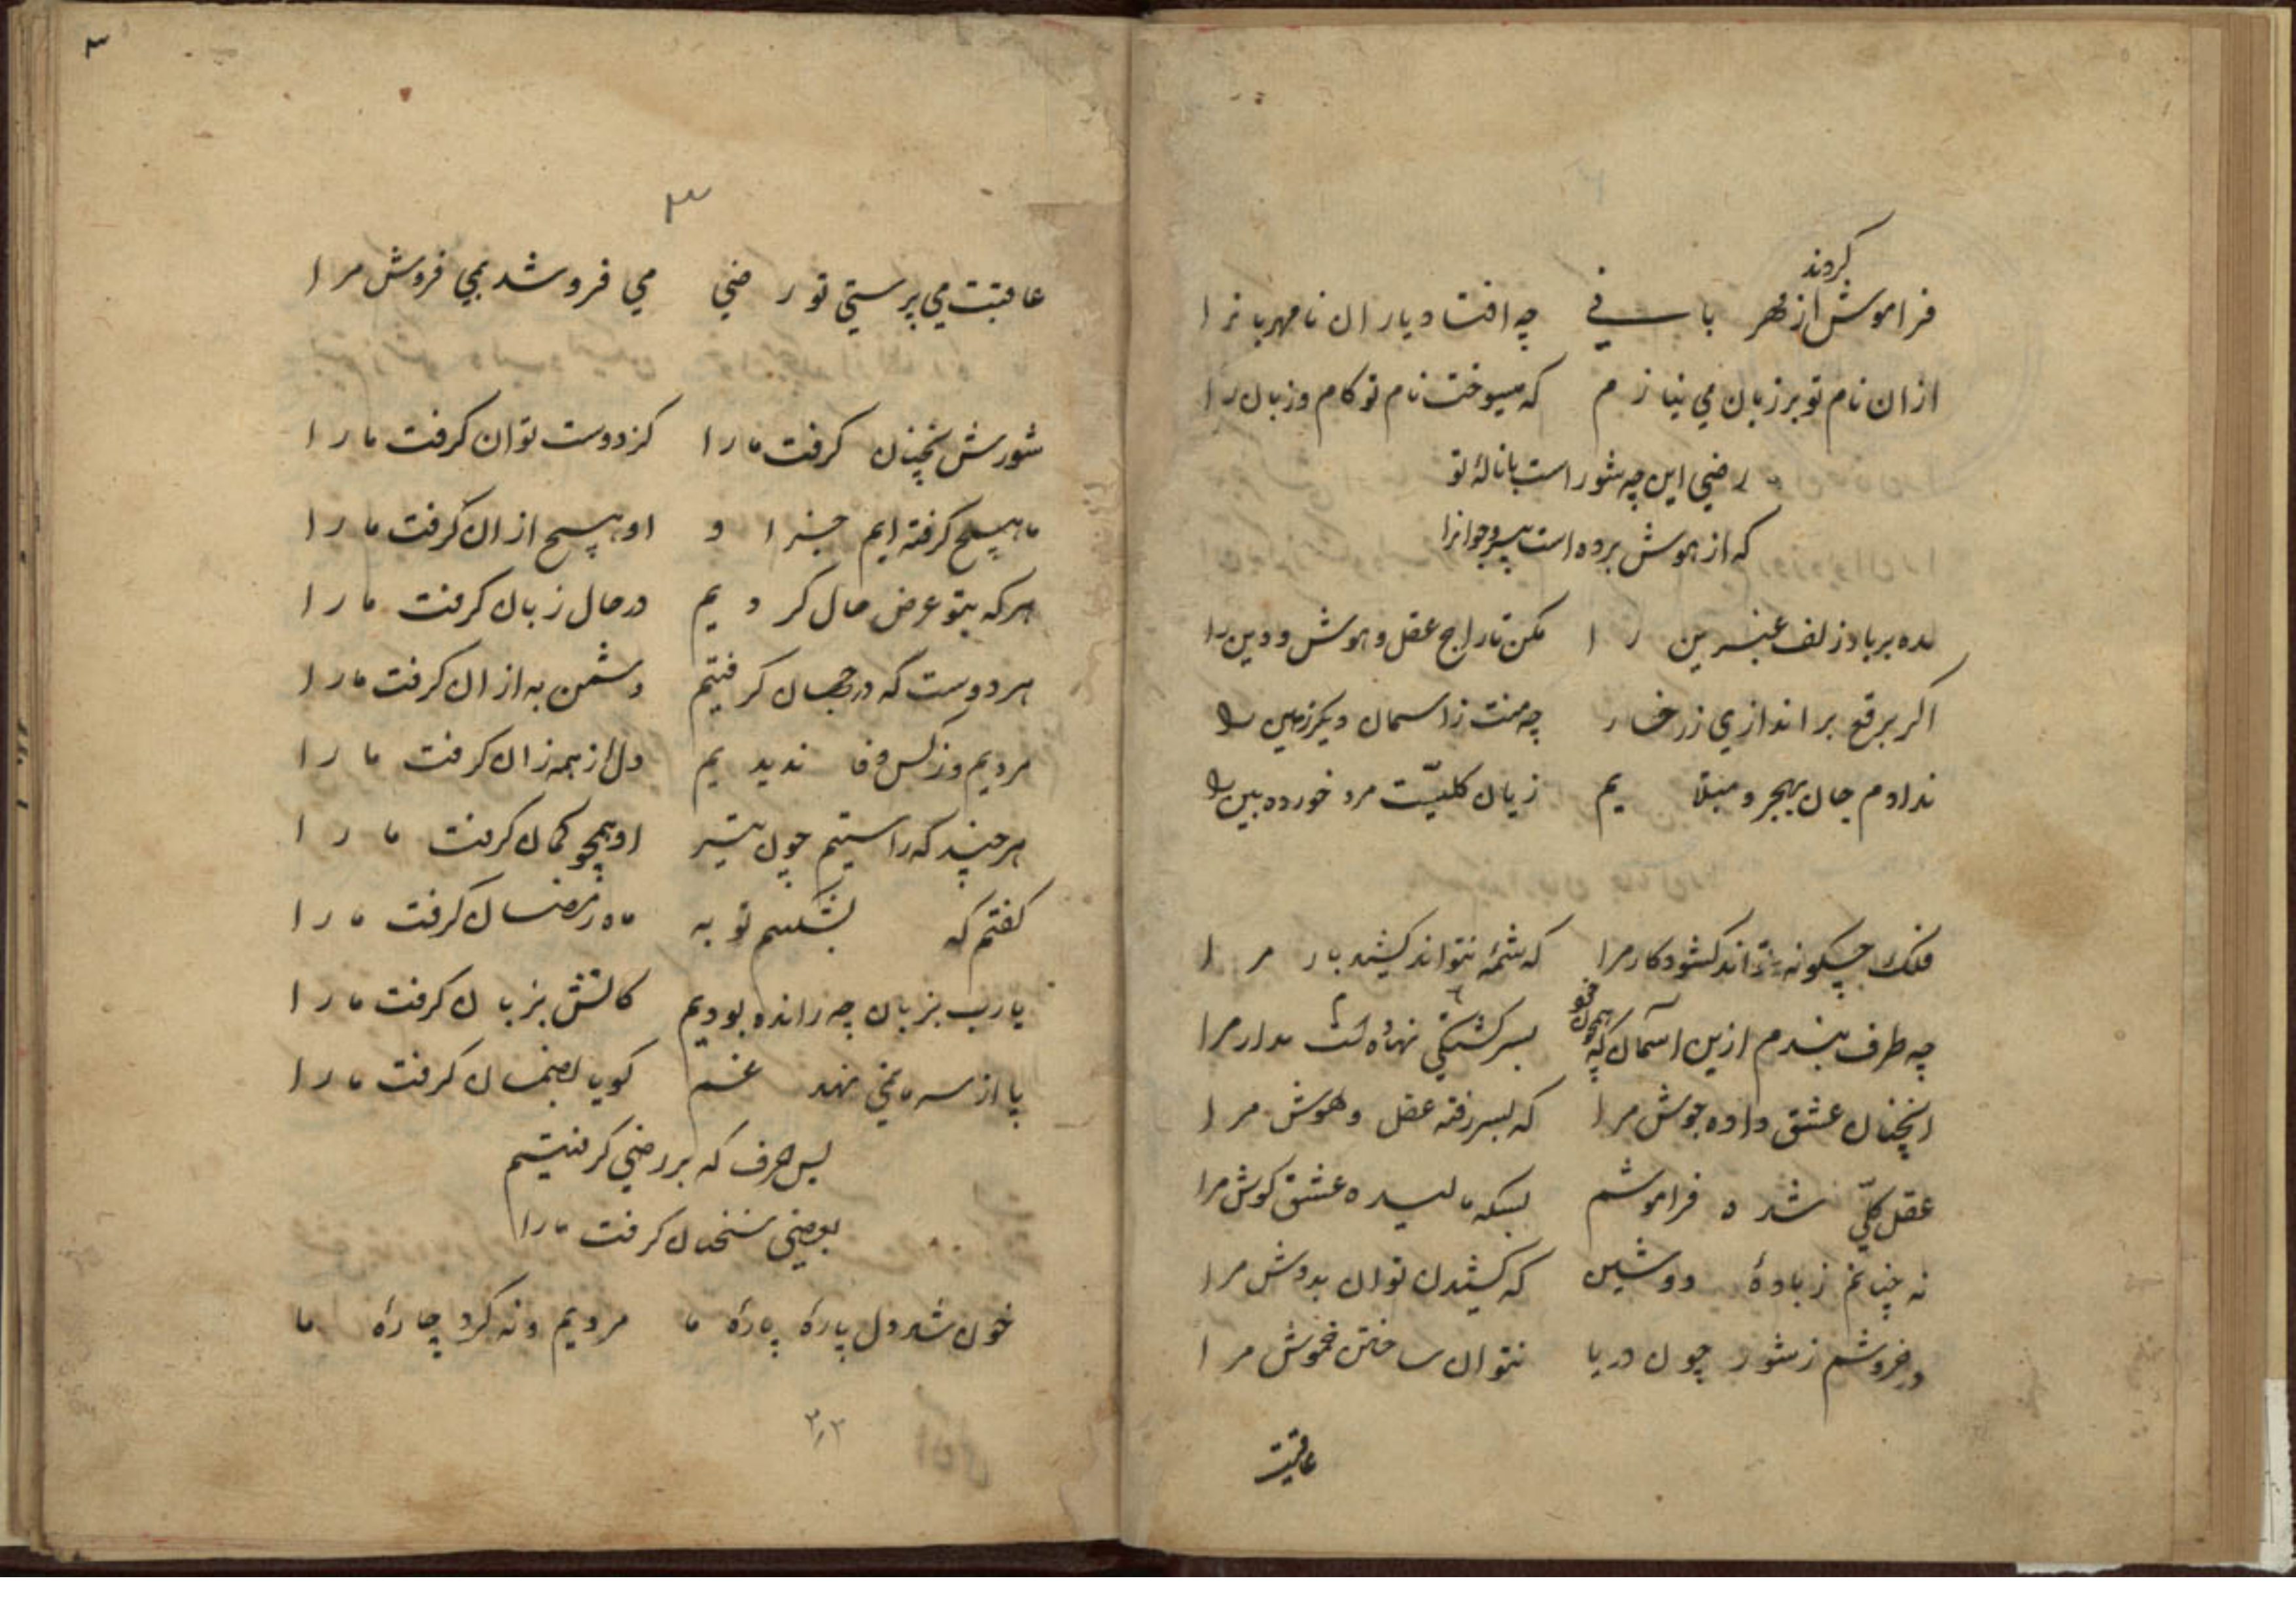 کردند
فراموش از مهر بانی چه افتاد یاران نامهربانرا
ازان نام تو بر زبان می نیارم که میسوخت نام تو کام و زبان را
رضی این چه شور است با نالهٔ تو
که از هوش برده است پیر و جوانرا
مده بر باد زلف عنبرین را مکن تاراج عقل و هوش و دین را
اکر برقع بر اندازی ز رخسار چه منت ز اسمان دیکر زمین را
ندادم جان بهجر و مبتلایم زیان کلیست مرد خورده بین را
فلک چکونه تواند کشود کار مرا که شمهٔ نتواند کشید بار مرا
چه طرف بندم ازین اسمان که همچون خود بسرکشتکی نهاده است مدار مرا
انچنان عشق داده جوش مرا که بسر رفته عقل و هوش مرا
عقل کلّی شده فراموشم بسکه مالیده عشق کوش مرا
نه چنانم ز بادهٔ دوشین که کشیدن توان بدوش مرا
در خروشم ز شور چون دریا نتوان ساختن خموش مرا
عاقبت
۳
۳
عاقبت می پرستی تو رضی می فروشد بمی فروش مرا
شورش نچنان کرفت ما را کز دوست توان کرفت ما را
ما هیچ کرفته ایم جز او او هیچ ازان کرفت ما را
هر که بتو عرض حال کردیم در حال زبان کرفت ما را
هر دوست که در جهان کرفتیم دشمن به ازان کرفت ما را
مردیم و ز کس وفا ندیدیم دل از همه زان کرفت ما را
هر چند که راستیم چون تیر او همچو کمان کرفت ما را
کفتم که بشکنیم توبه ماه رمضان کرفت ما را
یا رب بزبان چه رانده بودیم کاتش بزبان کرفت ما را
پا از سر ما نمی نهد غم کویا بضمان کرفت ما را
بس حرف که بر رضی کرفتیم
بعضی سخنان کرفت ما را
خون شد دل پارهٔ پارهٔ ما مردیم و نه کرد چارهٔ ما